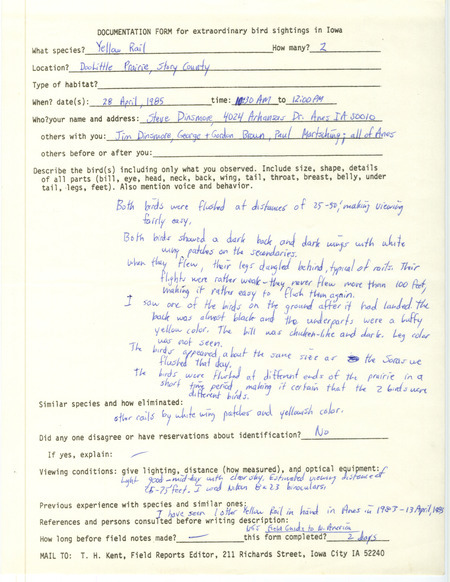 DOCUMENTATION FORM for extraordinary bird sightings in Iowa
What species? Yellow Rail How many? 2
Location? Doolittle Prairie, Story County
Type of habitat?
When? date(s): 28 April, 1985 time: 10:30 AM to 12:00 PM
Who?your name and address: Steve Dinsmore, 4024 Arkansas Dr. Ames IA 50010
others with you: Jim Dinsmore, George + Gordon Brown, Paul Martsching; all of Ames
others before or after you:
Describe the bird(s) including only what you observed. Include size, shape, details
of all parts (bill, eye, head, neck, back, wing, tail, throat, breast, belly, under
tail, legs, feet). Also mention voice and behavior.
Both birds were flushed at distances of 25-50', making viewing
fairly easy.
Both birds showed a dark back and dark wings with white
wing patches on the secondaries.
When they flew, their legs dangled behind, typical of rails. Their
flights were rather weak - they never flew more than 100 feet,
making it rather easy to flush them again.
I saw one of the birds on the ground after it had landed. The
back was almost black and the underparts were a buffy
yellow color. The bill was chicken-like and dark. Leg color
was not seen.
The birds appeared about the same size as the Soras we
flushed that day.
The birds were flushed at different ends of the prairie in a
short time period, making it certain that the 2 birds were
different birds.
Similar species and how eliminated:
other rails by white wing patches and yellowish color.
Did any one disagree or have reservations about identification? No
If yes, explain: —
Viewing conditions: give lighting, distance (how measured), and optical equipment:
light good - mid-day with clear sky. Estimated viewing distance at
25-75 feet. I used Nikon 8x23 binoculars.
Previous experience with species and similar ones:
I have seen 1 other Yellow Rail in hand in Ames in 1985 - 13 April, 1985
References and persons consulted before writing description:
Field Guide to N. America
How long before field notes made? — this form completed? 2 days
MAIL TO: T. H. Kent, Field Reports Editor, 211 Richards Street, Iowa City IA 52240